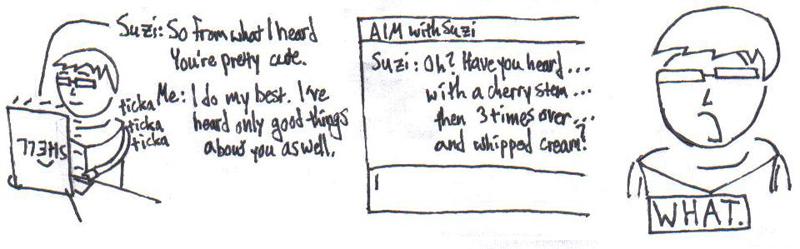 Suzi: So from what I heard
You're pretty cute.
Me: I do my best. I've
heard only good things
about you as well.
ticka
ticka
ticka
SHELL
AIM with Suzi
Suzi: Oh? Have you heard...
with a cherry stem...
then 3 times over...
and whipped cream?
WHAT.